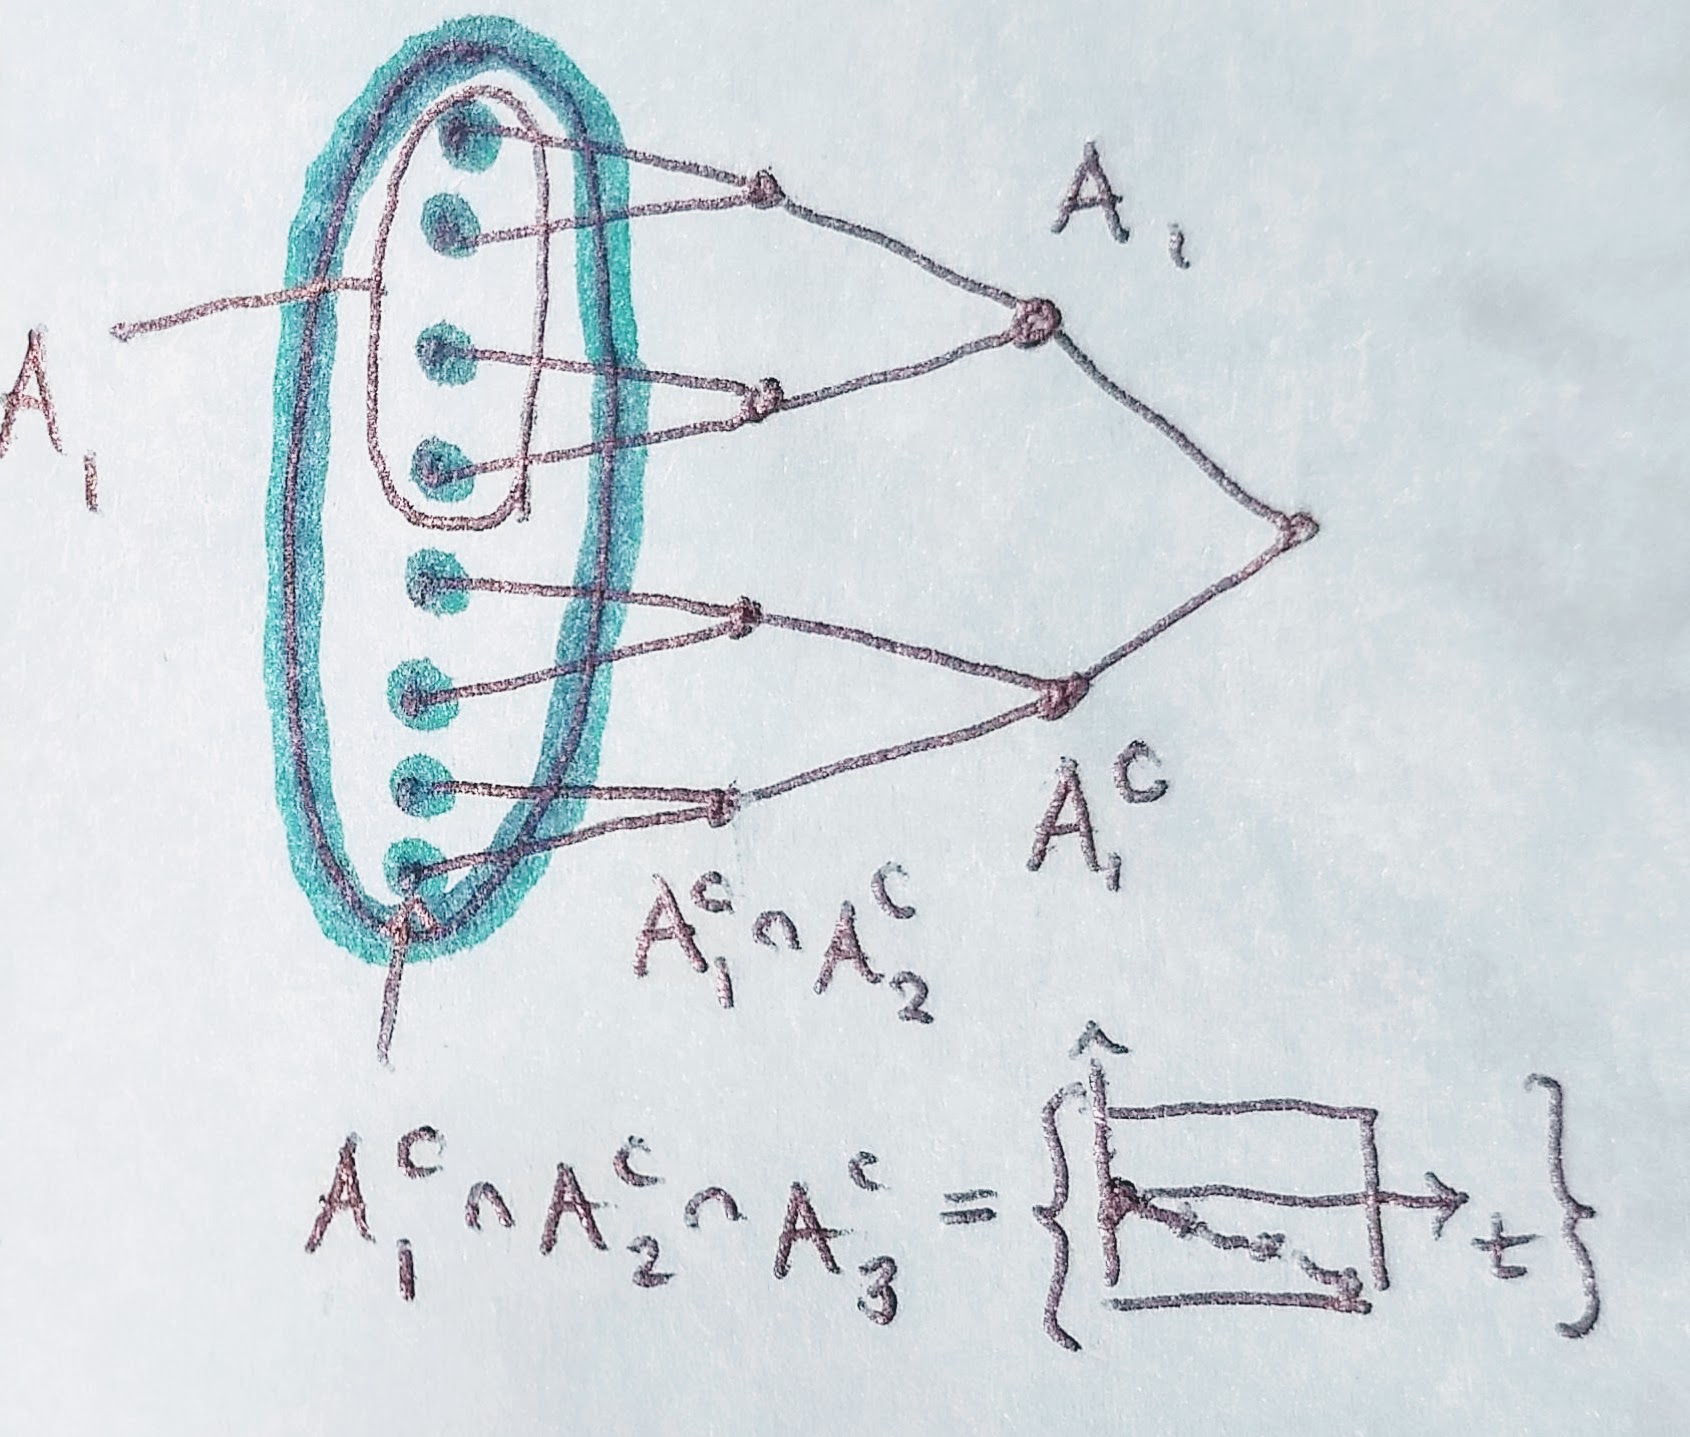 A₁
A₁
A₁ᶜ
A₁ᶜ ∩ A₂ᶜ
A₁ᶜ ∩ A₂ᶜ ∩ A₃ᶜ = { t }